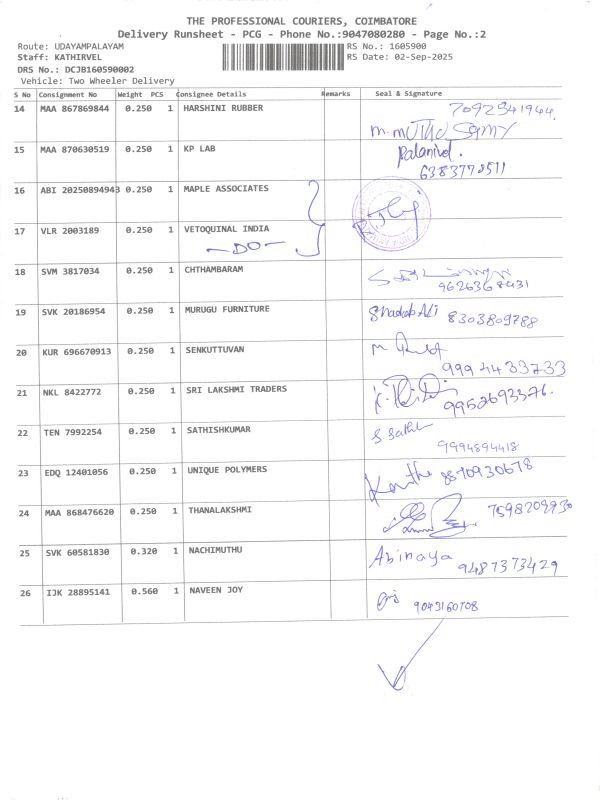 THE PROFESSIONAL COURIERS, COIMBATORE
Delivery Runsheet - PCG - Phone No.:9047080280 - Page No.:2
Route: UDAYAMPALAYAM RS No.: 1605900
Staff: KATHIRVEL RS Date: 02-Sep-2025
DRS No.: DCJB160590002
Vehicle: Two Wheeler Delivery
S No Consignment No Weight PCS Consignee Details Remarks Seal & Signature
14 MAA 867869844 0.250 1 HARSHINI RUBBER 7092541944
m. muthu samy
15 MAA 870630519 0.250 1 KP LAB Palanivel.
6383778511
16 ABI 20250894943 0.250 1 MAPLE ASSOCIATES
17 VLR 2003189 0.250 1 VETOQUINAL INDIA
-DO-
18 SVM 3817034 0.250 1 CHTHAMBARAM
9626368431
19 SVK 20186954 0.250 1 MURUGU FURNITURE Shadab Ali 8303809788
20 KUR 696670913 0.250 1 SENKUTTUVAN
9994433733
21 NKL 8422772 0.250 1 SRI LAKSHMI TRADERS
9952693376.
22 TEN 7992254 0.250 1 SATHISHKUMAR S Sathi
9994894418
23 EDQ 12401056 0.250 1 UNIQUE POLYMERS 8870930678
24 MAA 868476620 0.250 1 THANALAKSHMI 7598209930
25 SVK 60581830 0.320 1 NACHIMUTHU Abinaya
9487373429
26 IJK 28895141 0.560 1 NAVEEN JOY
9043160708